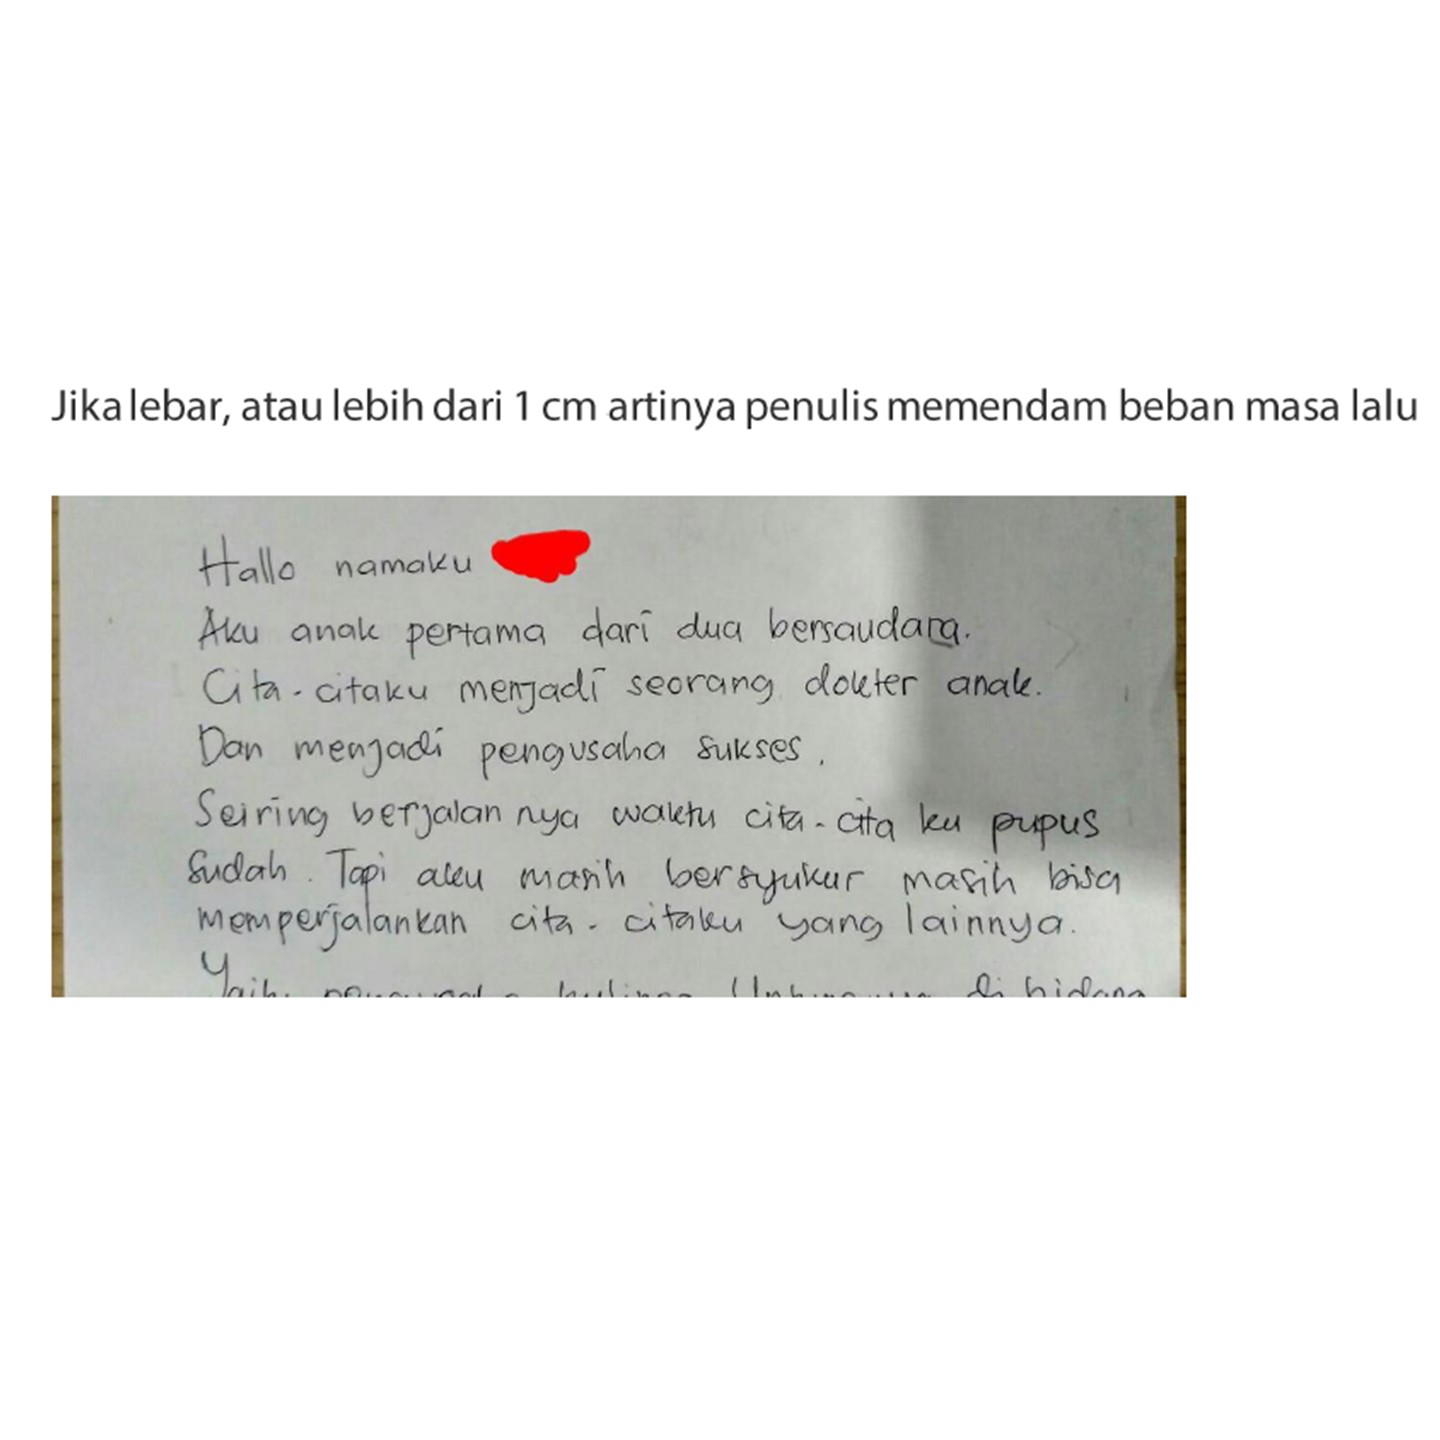 Jika lebar, atau lebih dari 1 cm artinya penulis memendam beban masa lalu
Hallo namaku
Aku anak pertama dari dua bersaudara.
Cita-citaku menjadi seorang dokter anak.
Dan menjadi pengusaha sukses.
Seiring berjalan nya waktu cita-cita ku pupus
sudah. Tapi aku masih bersyukur masih bisa
memperjalankan cita-citaku yang lainnya.